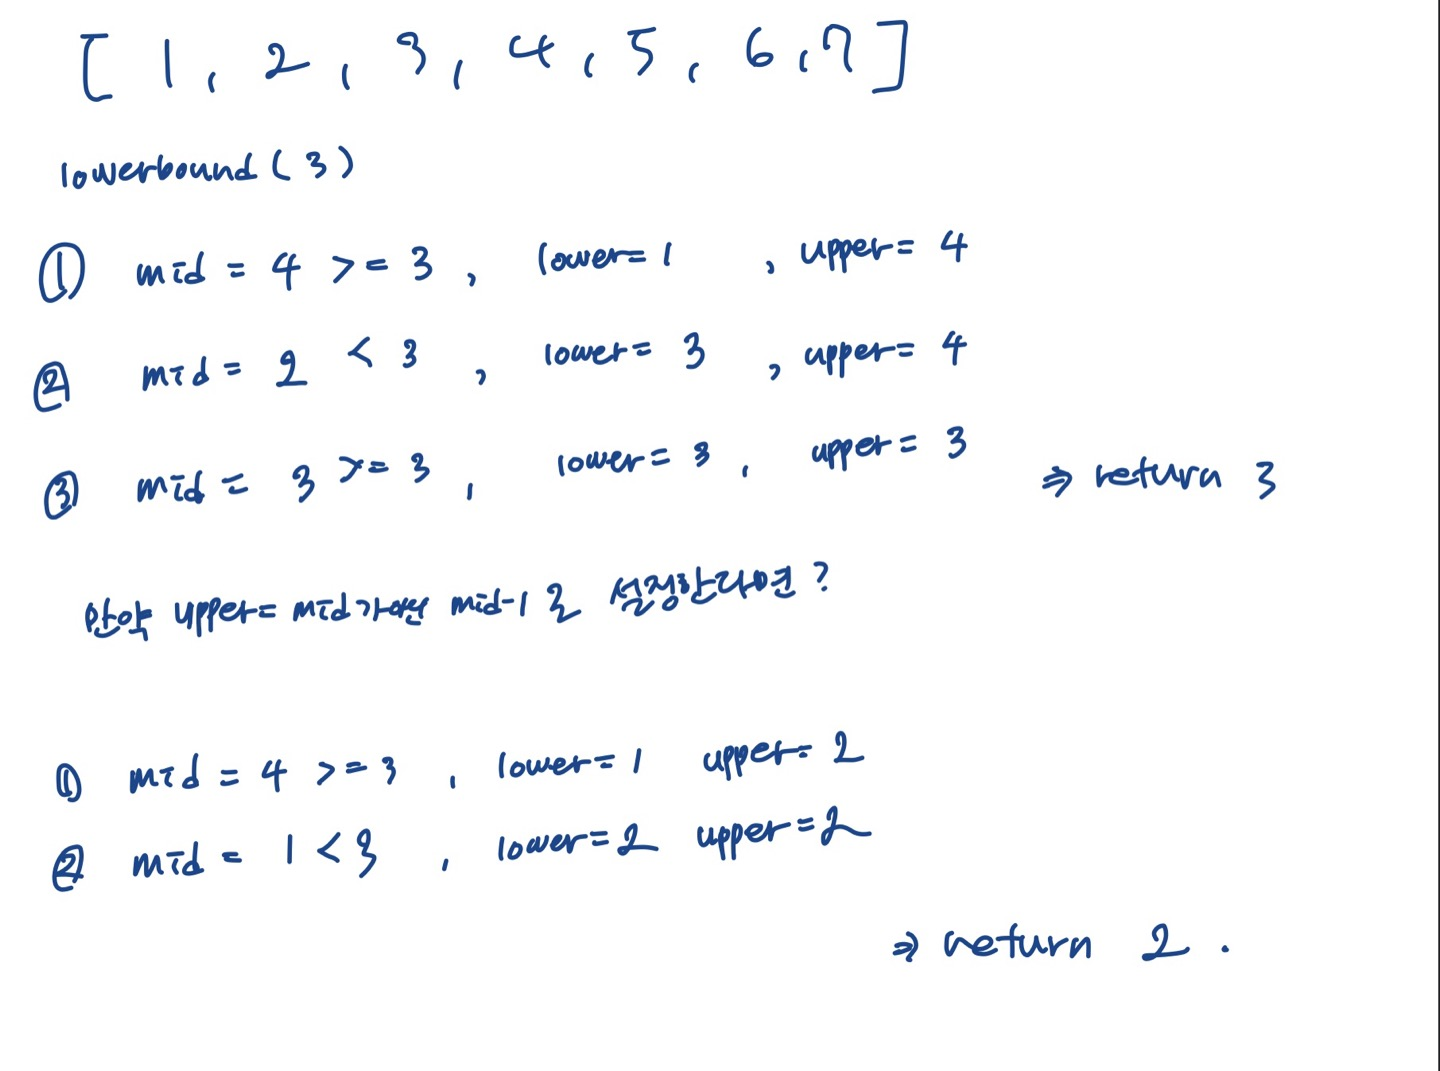 [ 1, 2, 3, 4, 5, 6, 7 ]
lowerbound ( 3 )
① mid = 4 >= 3 , lower= 1 , upper= 4
② mid = 2 < 3 , lower= 3 , upper= 4
③ mid = 3 >= 3 , lower= 3 , upper= 3 ⇒ return 3
만약 upper= mid가 아닌 mid-1로 설정한다면?
① mid = 4 >= 3 , lower= 1 upper= 2
② mid = 1 < 3 , lower= 2 upper= 2
⇒ return 2 .